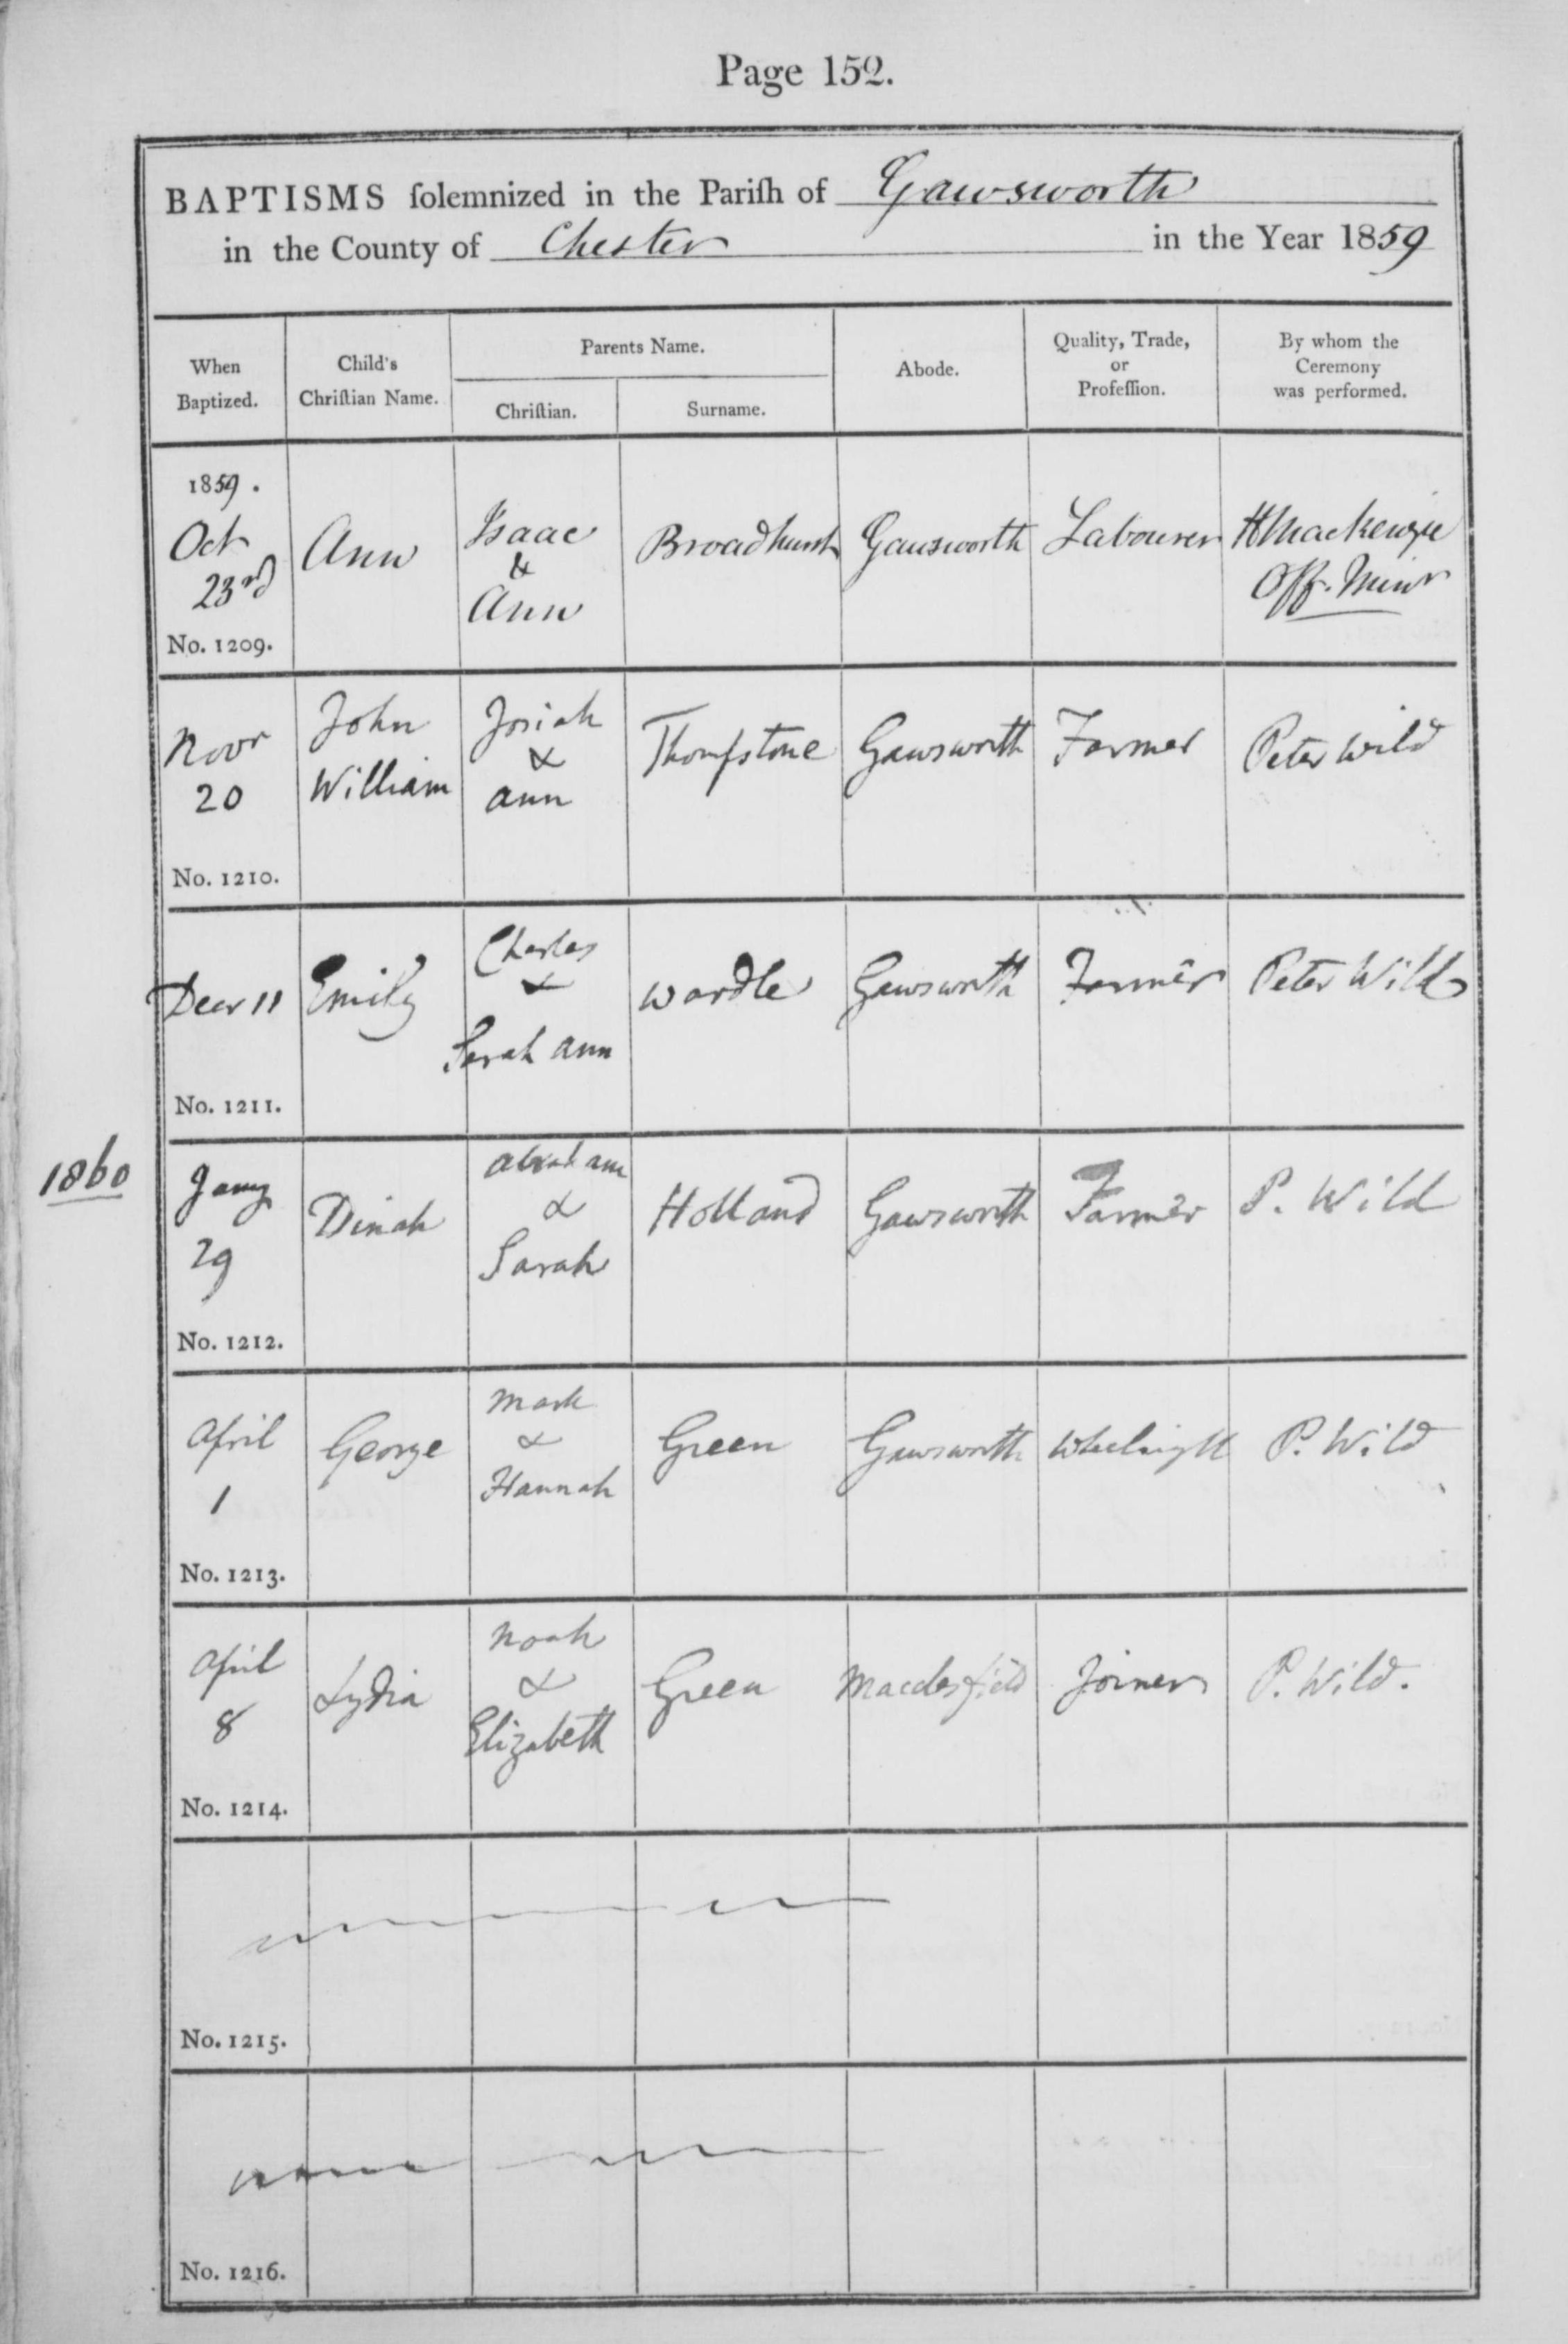 Page 152.
BAPTISMS ſolemnized in the Pariſh of Gawsworth
in the County of Chester in the Year 1859
When Baptized.
Child's Chriſtian Name.
Parents Name.
Chriſtian.
Surname.
Abode.
Quality, Trade, or Profeſſion.
By whom the Ceremony was performed.
1859.
Oct
23rd
No. 1209.
Ann
Isaac
&
Ann
Broadhurst
Gawsworth
Labourer
H Mackenzie
Off. Minr
Novr
20
No. 1210.
John
William
Josiah
&
Ann
Thompstone
Gawsworth
Farmer
Peter Wild
Decr 11
No. 1211.
Emily
Charles
&
Sarah Ann
Wardle
Gawsworth
Farmer
Peter Wild
1860
Jany
29
No. 1212.
Dinah
Abraham
&
Sarah
Holland
Gawsworth
Farmer
P. Wild
April
1
No. 1213.
George
Mark
&
Hannah
Green
Gawsworth
Wheelright
P. Wild
April
8
No. 1214.
Lydia
Noah
&
Elizabeth
Green
Macclesfield
Joiner
P. Wild.
No. 1215.
No. 1216.